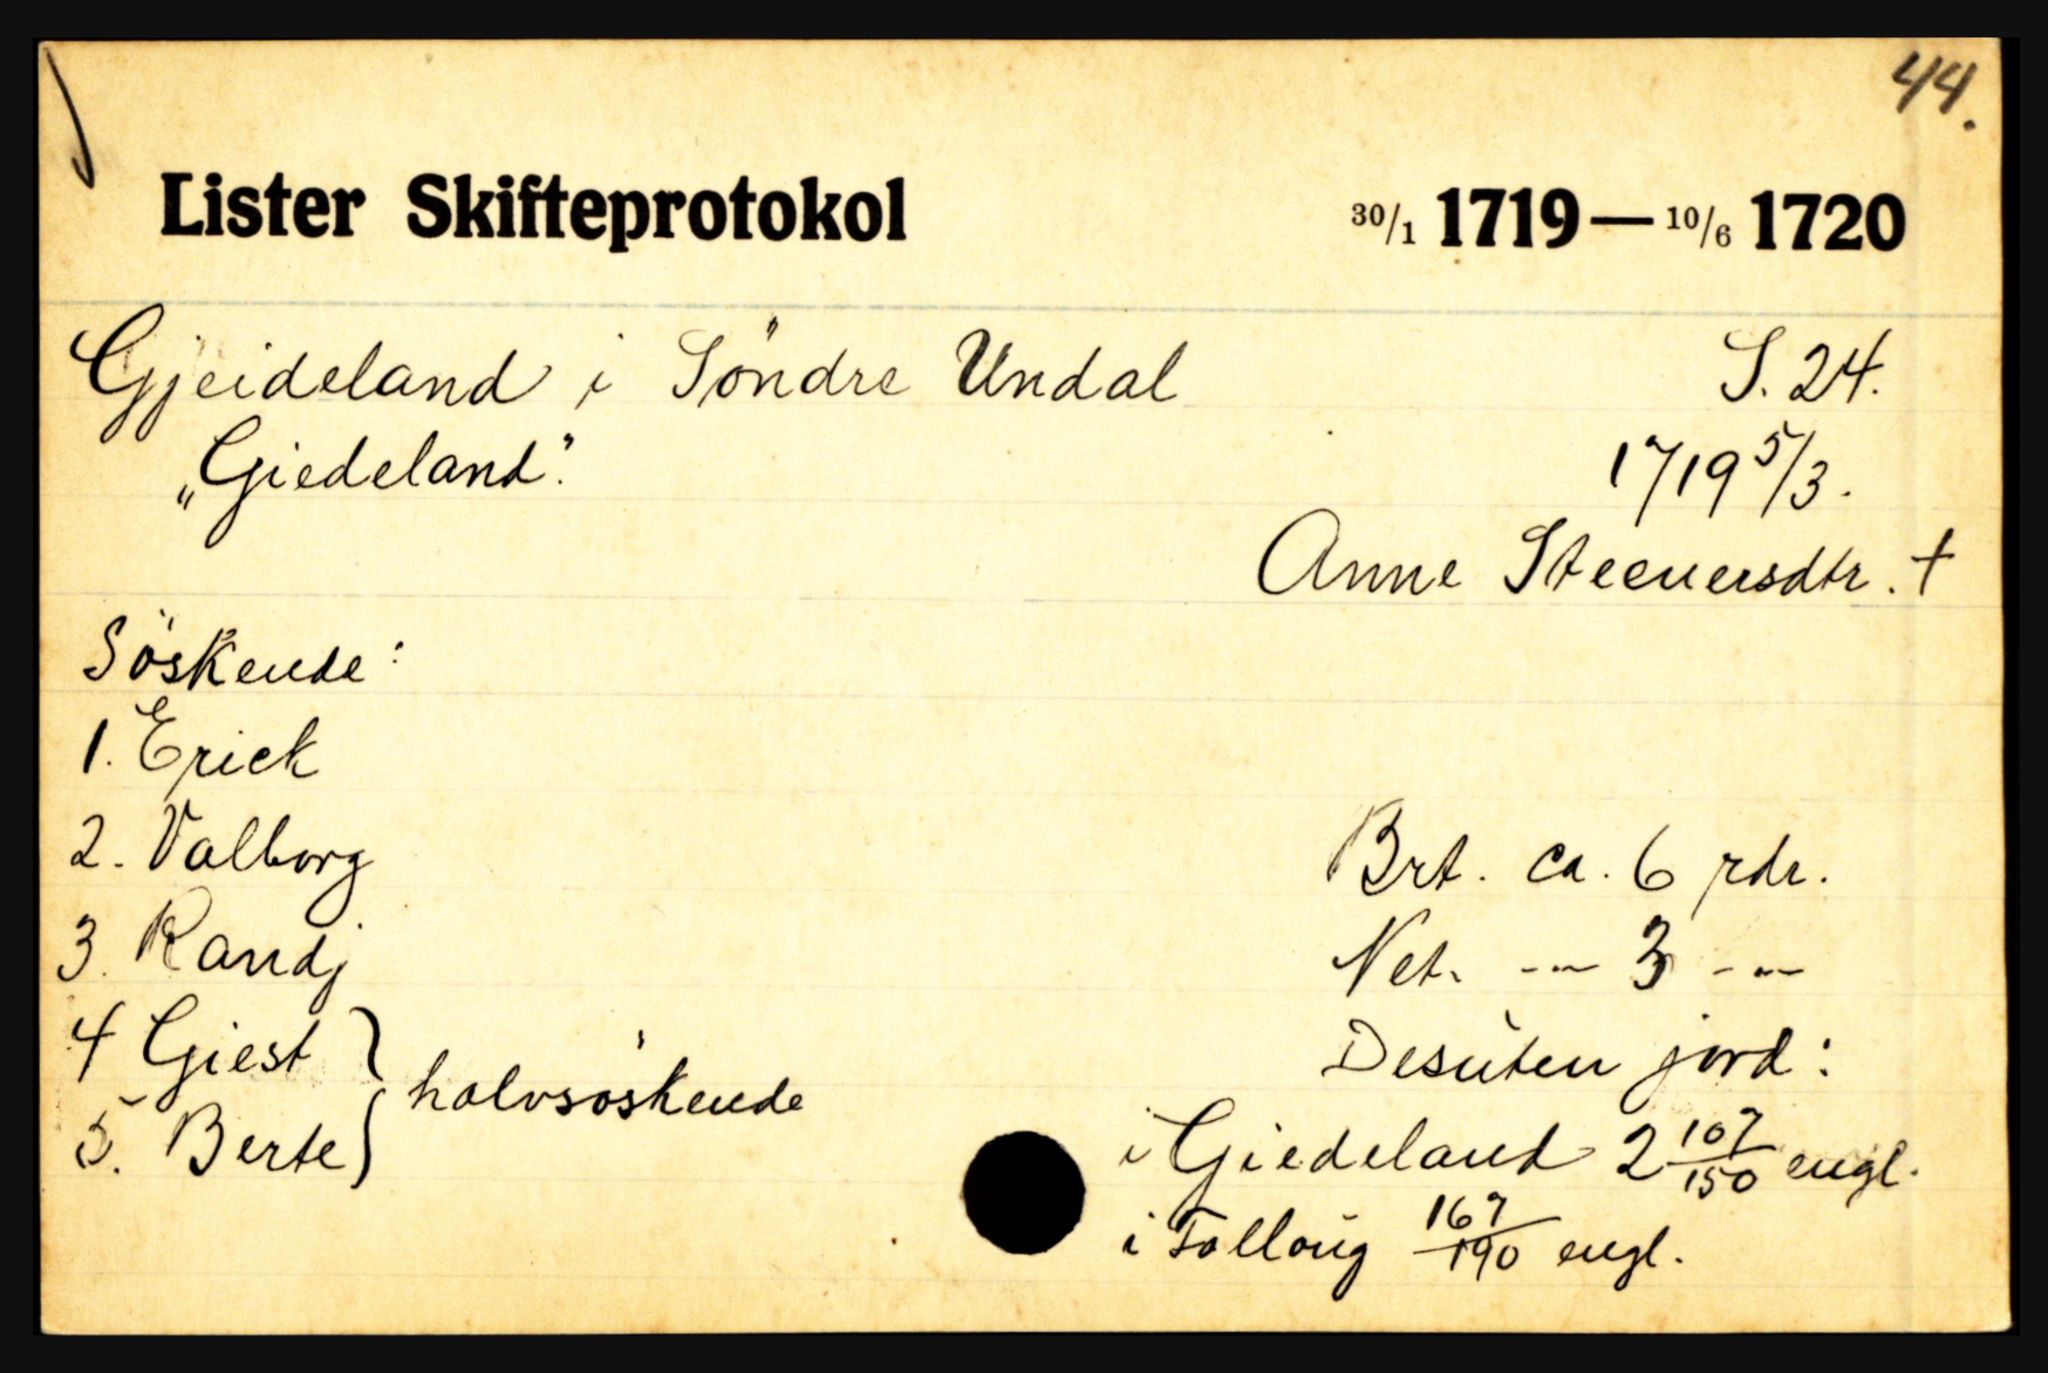 44.
Lister Skifteprotokol 30/1 1719 — 10/6 1720
Gjeideland i Söndre Undal S. 24.
„Giedeland". 1719 5/3.
Anne Steeuersdtr. †
Söskende:
1. Erick
2. Valborg Brt. ca. 6 rdr.
3. Randj Net. -"- 3 -"-
4 Giest } halvsöskende Desuten jord:
5. Berte i Giedeland 2 107/150 engl.
i Falloug 167/190 engl.